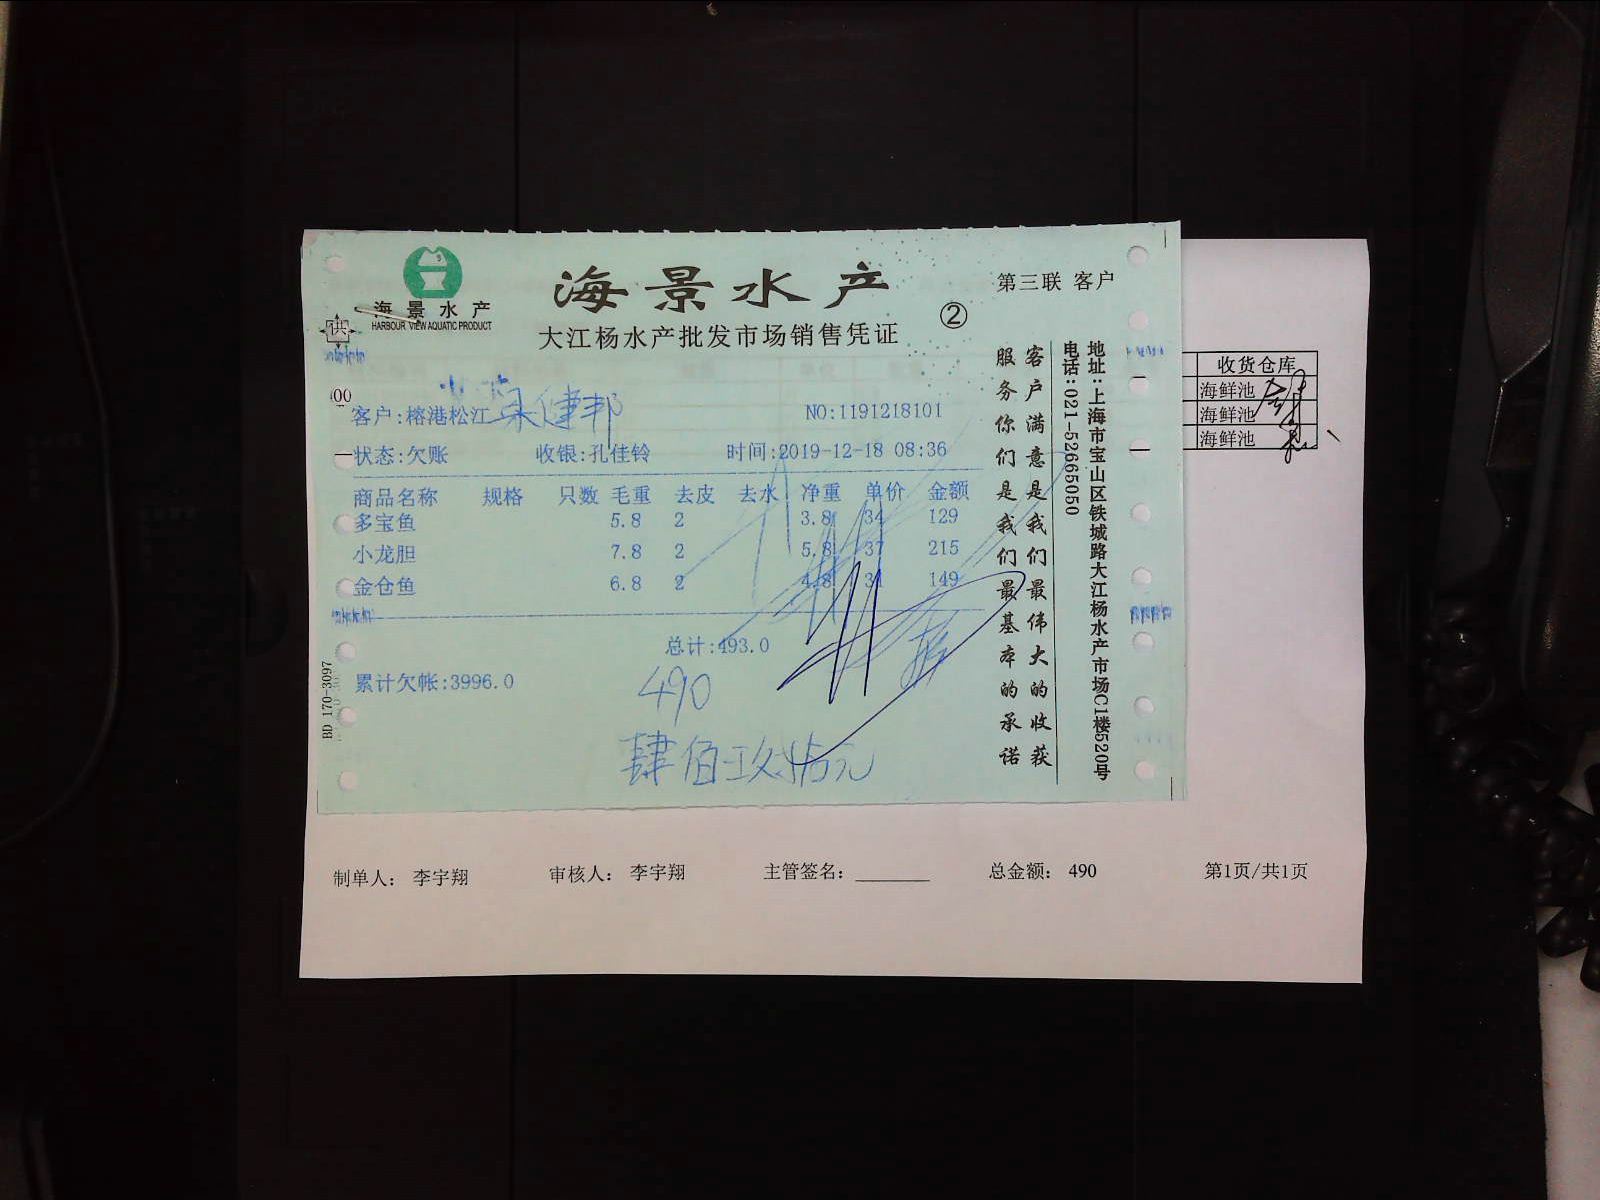 海景水产
HARBOUR VIEW AQUATIC PRODUCT
海景水产
大江杨水产批发市场销售凭证
②
第三联 客户
供
00
客户:榕港松江
NO:1191218101
状态:欠账 收银:孔佳铃 时间:2019-12-18 08:36
商品名称 规格 只数 毛重 去皮 去水 净重 单价 金额
多宝鱼 5.8 2 3.8 34 129
小龙胆 7.8 2 5.8 37 215
金仓鱼 6.8 2 4.8 31 149
总计:493.0
累计欠帐:3996.0
490
肆佰玖拾元
BD 170-3097
客户满意是我们最伟大的收获
服务你们是我们最基本的承诺
地址:上海市宝山区铁城路大江杨水产市场C1楼520号
电话:021-52665050
收货仓库
海鲜池
海鲜池
海鲜池
制单人: 李宇翔 审核人: 李宇翔 主管签名: 总金额: 490 第1页/共1页